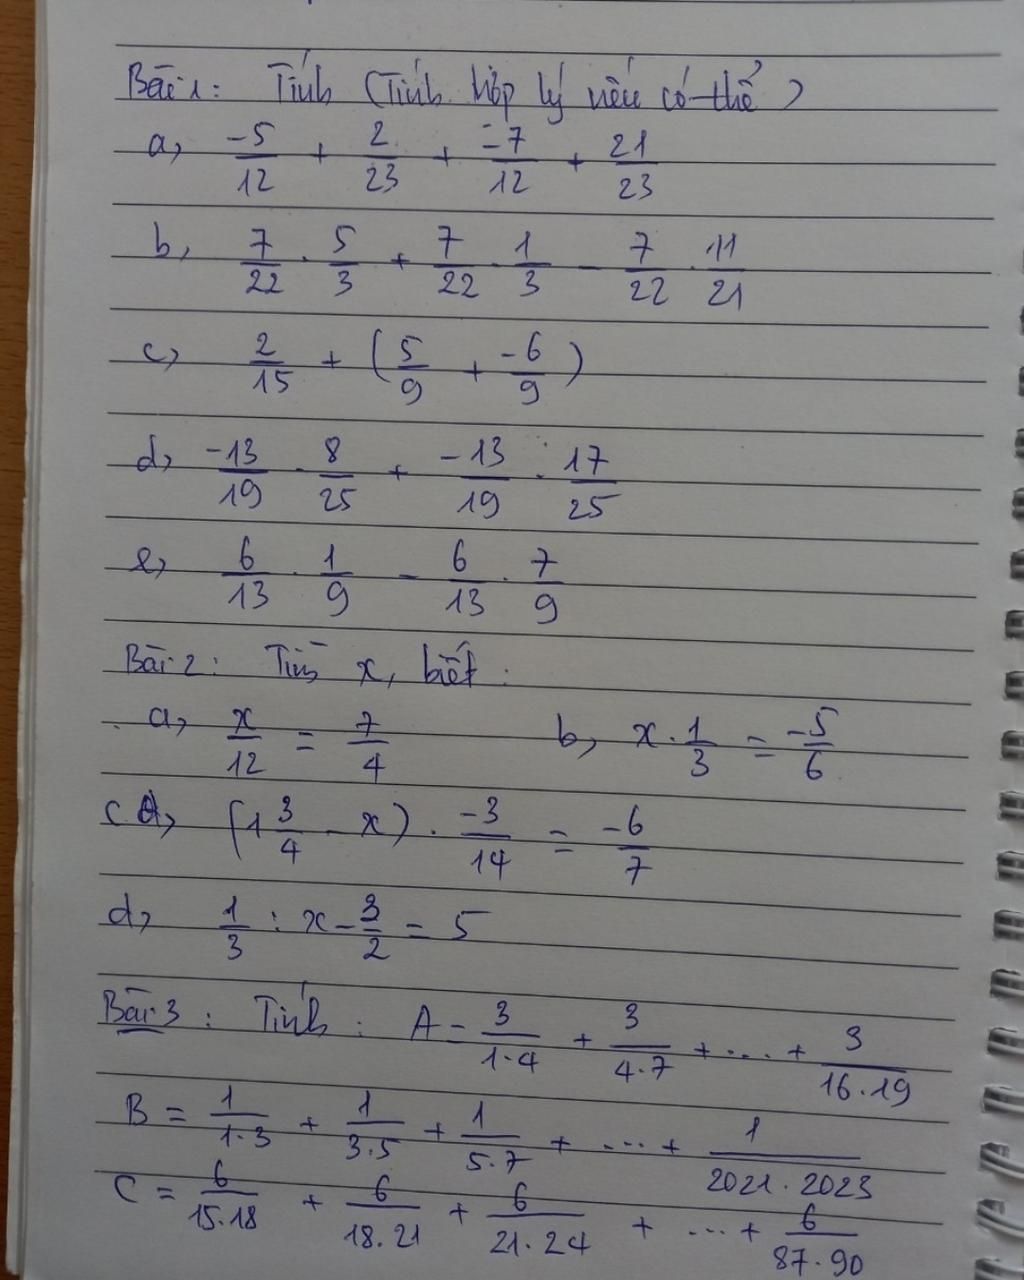 Bài 1: Tính (Tính hợp lý nếu có thể)
a, -5/12 + 2/23 + -7/12 + 21/23
b, 7/22 . 5/3 + 7/22 . 1/3 - 7/22 . 11/21
c, 2/15 + (5/9 + -6/9)
d, -13/19 . 8/25 + -13/19 . 17/25
e, 6/13 . 1/9 - 6/13 . 7/9
Bài 2: Tìm x, biết:
a, x/12 = 7/4 b, x . 1/3 = -5/6
c, (1 3/4 - x) . -3/14 = -6/7
d, 1/3 : x - 3/2 = 5
Bài 3: Tính: A = 3/1.4 + 3/4.7 + .... + 3/16.19
B = 1/1.3 + 1/3.5 + 1/5.7 + .... + 1/2021.2023
C = 6/15.18 + 6/18.21 + 6/21.24 + .... + 6/87.90